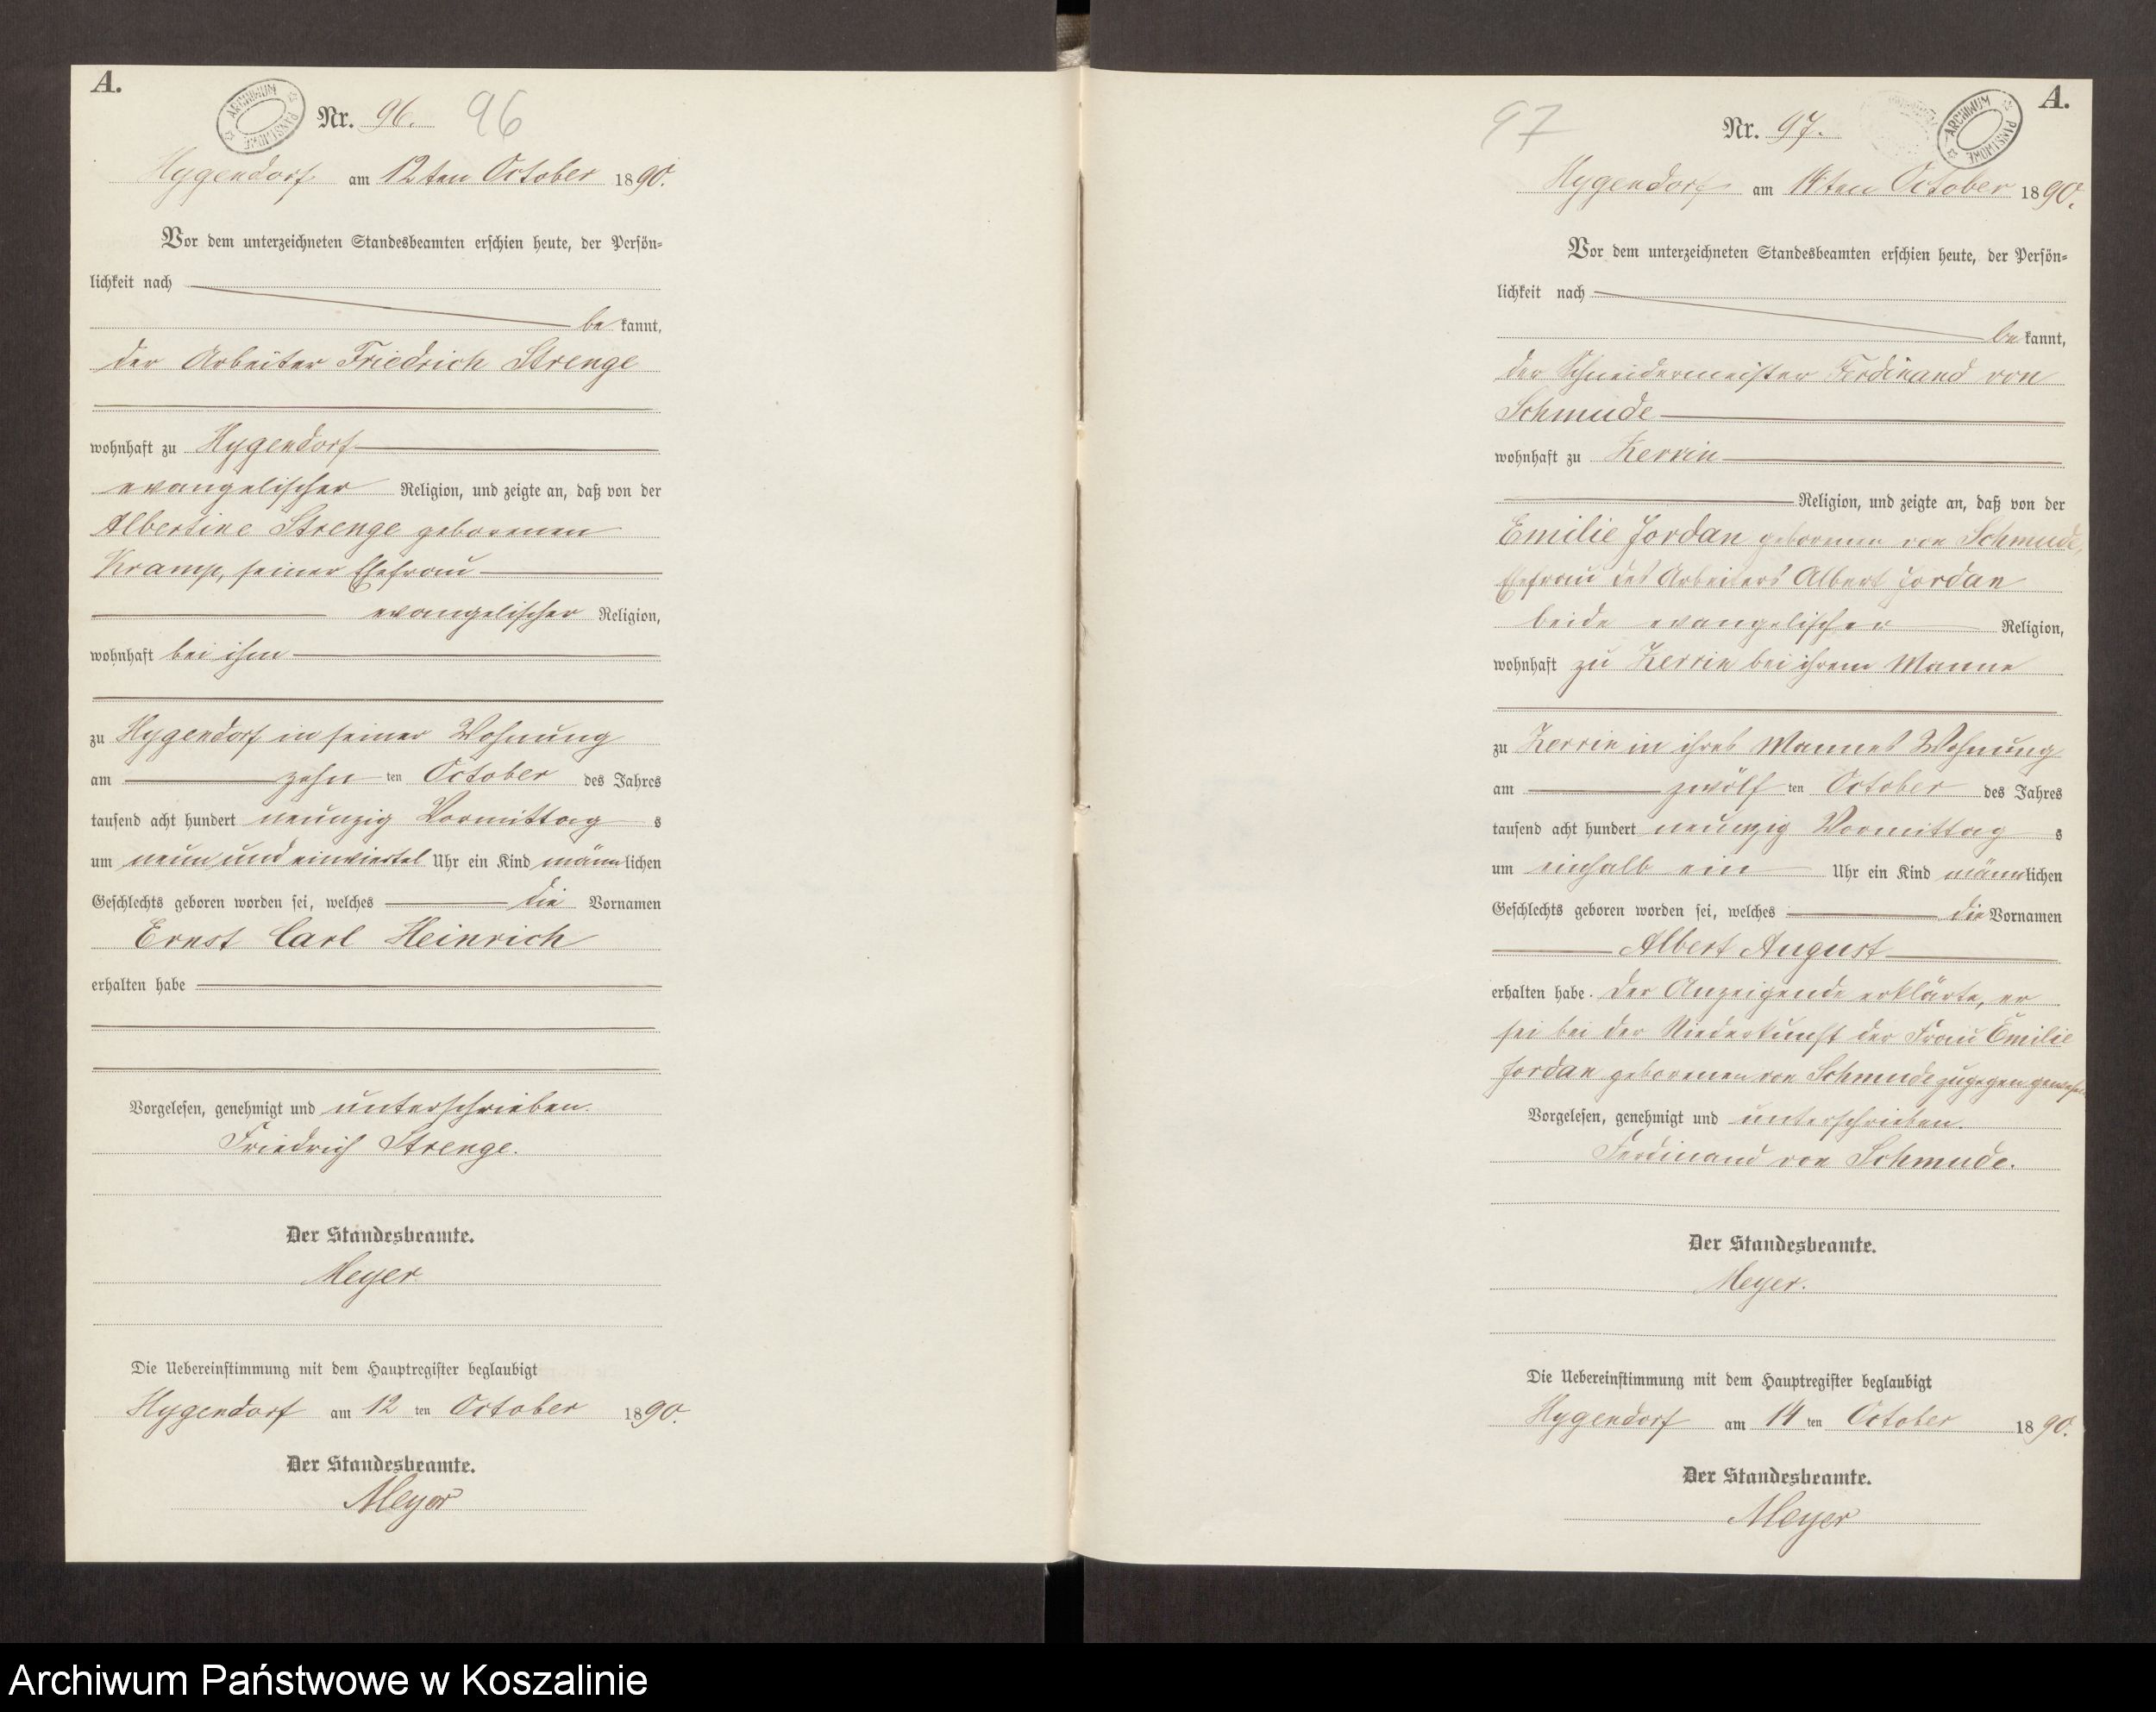 A.
ARCHIWUM PAŃSTWOWE
Nr. 96. 96
Hygendorf am 12ten October 1890.
Vor dem unterzeichneten Standesbeamten erschien heute, der Persön-
lichkeit nach
bekannt,
der Arbeiter Friedrich Strenge
wohnhaft zu Hygendorf
evangelischer Religion, und zeigte an, daß von der
Albertine Strenge geborenen
Kramp, seiner Ehefrau
evangelischer Religion,
wohnhaft bei ihm
zu Hygendorf in seiner Wohnung
am zehnten October des Jahres
tausend acht hundert neunzig Vormittags
um neun und einviertel Uhr ein Kind männlichen
Geschlechts geboren worden sei, welches die Vornamen
Ernst Carl Heinrich
erhalten habe
Vorgelesen, genehmigt und unterschrieben.
Friedrich Strenge.
Der Standesbeamte.
Meyer
Die Uebereinstimmung mit dem Hauptregister beglaubigt
Hygendorf am 12ten October 1890.
Der Standesbeamte.
Meyer
A.
ARCHIWUM PAŃSTWOWE
97 Nr. 97.
Hygendorf am 14ten October 1890.
Vor dem unterzeichneten Standesbeamten erschien heute, der Persön-
lichkeit nach
bekannt,
der Schneidermeister Ferdinand von
Schmude
wohnhaft zu Zerrin
Religion, und zeigte an, daß von der
Emilie Jordan geborenen von Schmude,
Ehefrau des Arbeiters Albert Jordan
beide evangelischer Religion,
wohnhaft zu Zerrin bei ihrem Manne
zu Zerrin in ihres Mannes Wohnung
am zwölften October des Jahres
tausend acht hundert neunzig Vormittags
um einhalb ein Uhr ein Kind männlichen
Geschlechts geboren worden sei, welches die Vornamen
Albert August
erhalten habe. Der Anzeigende erklärte, er
sei bei der Niederkunft der Frau Emilie
Jordan geborenen von Schmude zugegen gewesen
Vorgelesen, genehmigt und unterschrieben.
Ferdinand von Schmude.
Der Standesbeamte.
Meyer.
Die Uebereinstimmung mit dem Hauptregister beglaubigt
Hygendorf am 14ten October 1890.
Der Standesbeamte.
Meyer
Archiwum Państwowe w Koszalinie